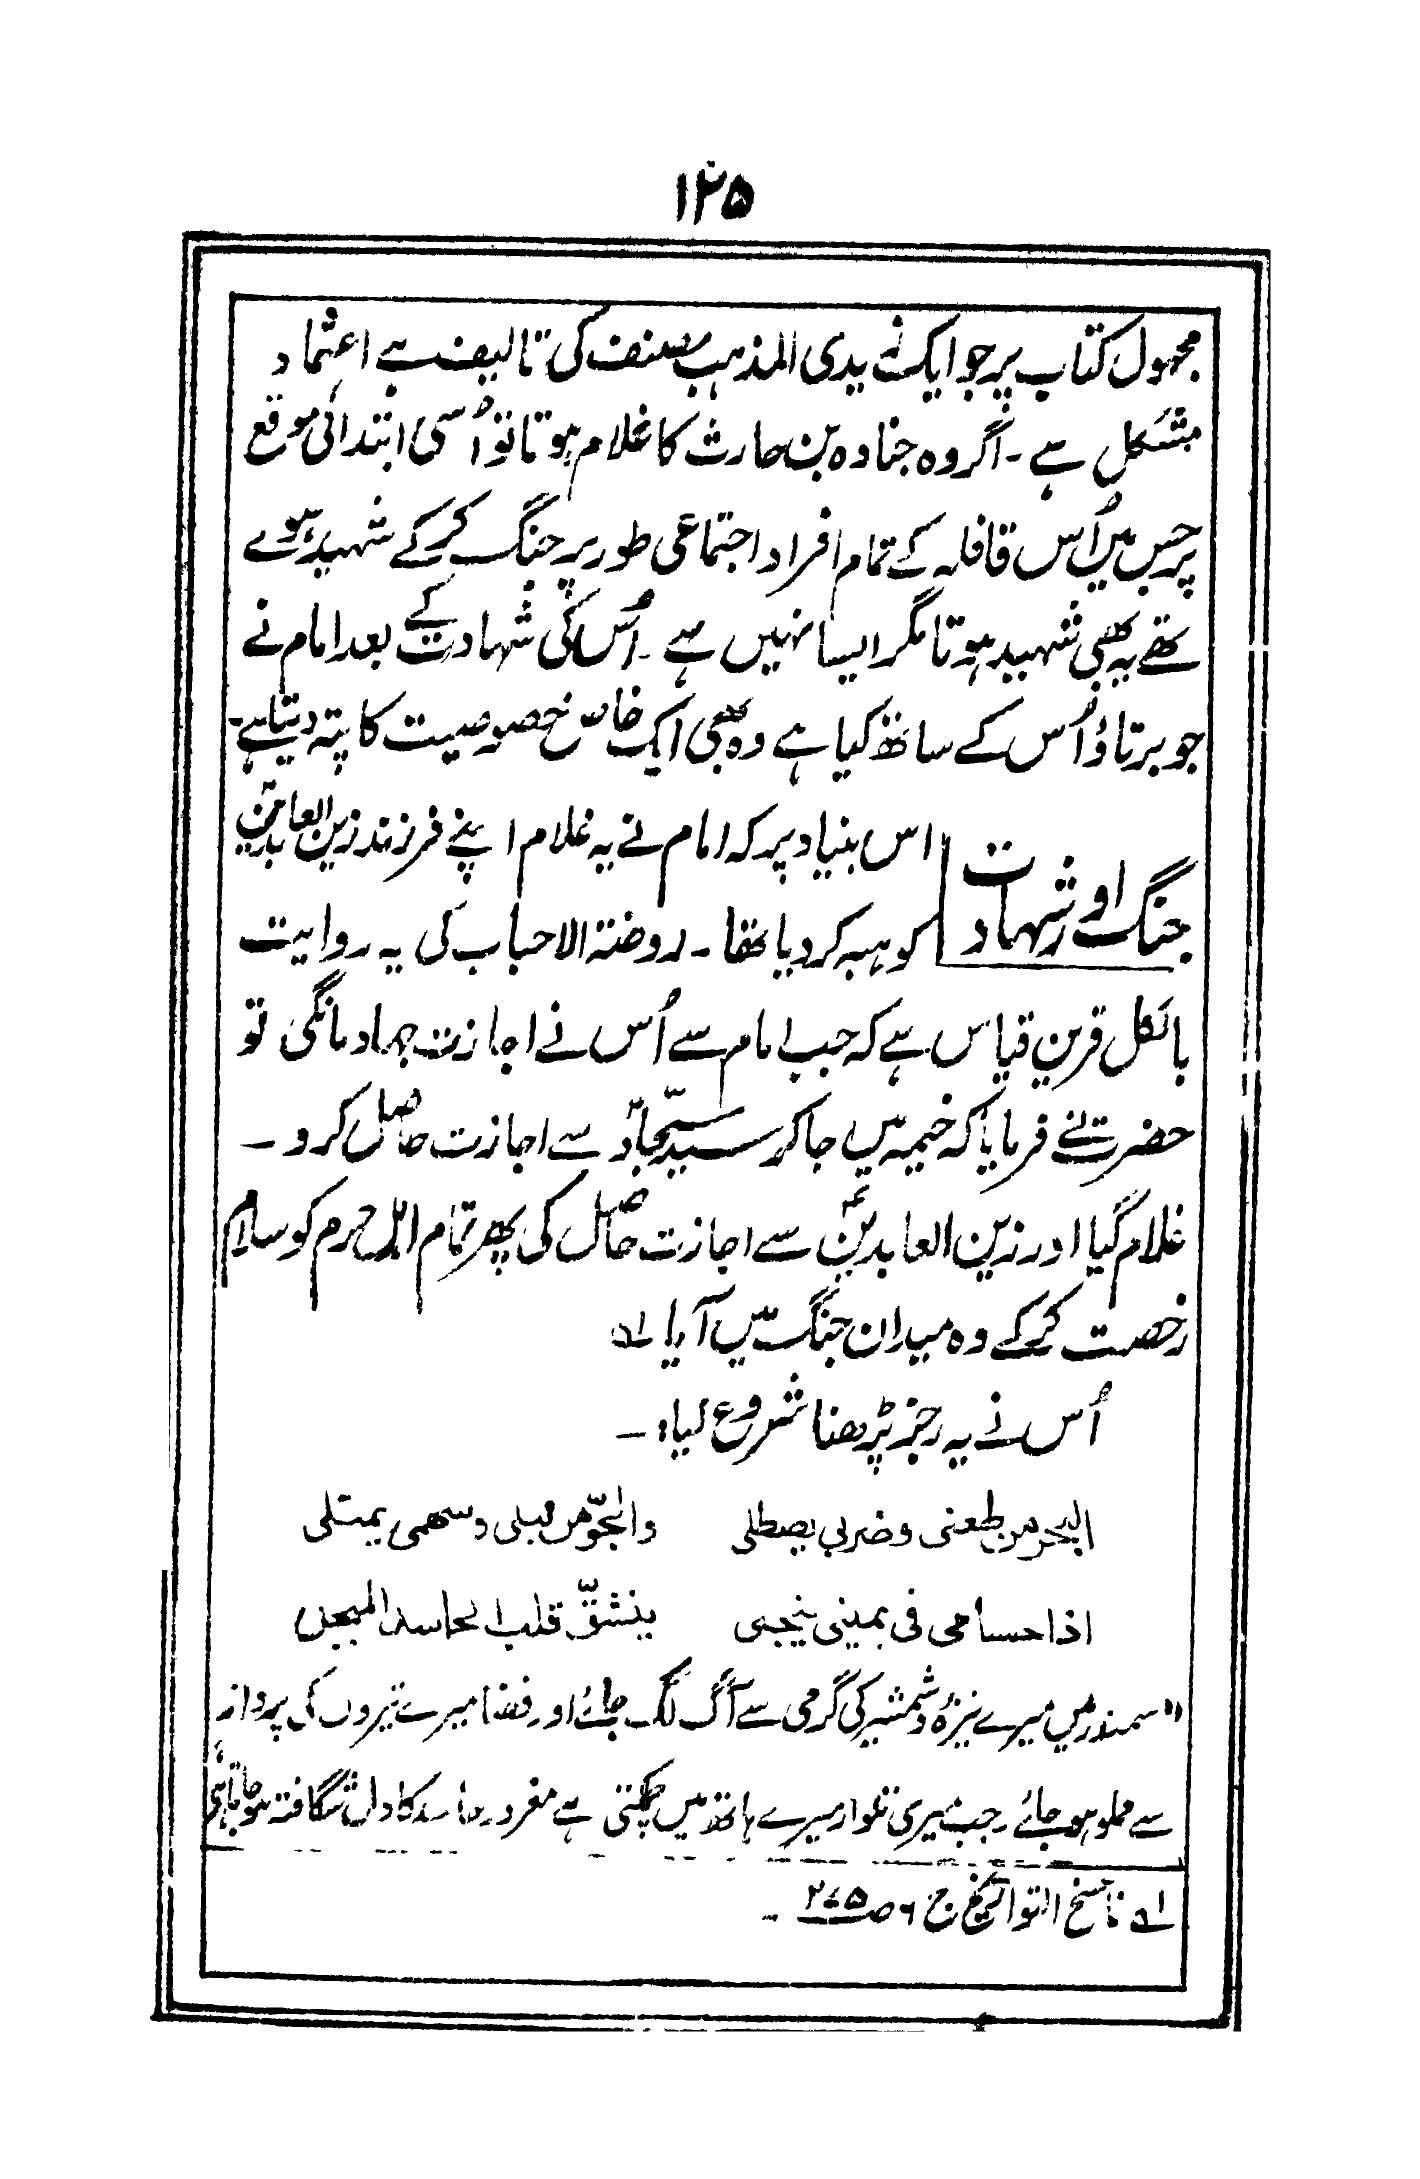 ۱۲۵
مجہول کتاب پر جو ایک زیدی المذہب مصنف کی تالیف ہے اعتماد
مشکل ہے ۔ اگر وہ جنادہ بن حارث کا غلام ہوتا تو اُسی ابتدائی موقع
پر جس میں اُس قافلہ کے تمام افراد اجتماعی طور پر جنگ کرکے شہید ہوئے
تھے یہ بھی شہید ہوتا مگر ایسا نہیں ہے ۔ اُس کی شہادت کے بعد امام نے
جو برتاؤ اُس کے ساتھ کیا ہے وہ بھی ایک خاص خصوصیت کا پتہ دیتا ہے۔
جنگ اور شہادت
اس بنیاد پر کہ امام نے یہ غلام اپنے فرزند زین العابدینؑ
کو ہبہ کر دیا تھا ۔ روضتہ الاحباب کی یہ روایت
بالکل قرین قیاس ہے کہ جب امام سے اُس نے اجازت جہاد مانگی تو
حضرت نے فرمایا کہ خیمہ میں جا کر سید سجادؑ سے اجازت حاصل کرو ۔
غلام گیا اور زین العابدینؑ سے اجازت حاصل کی پھر تمام اہل حرم کو سلام
رخصت کرکے وہ میدان جنگ میں آیا ؂۱
اُس نے یہ رجز پڑھنا شروع کیا: ۔
البحر من طعنی و ضربی یصطلی والجوّ من نبلی و سھمی یمتلی
اذا حسامی فی یمینی ینجلی ینشقّ قلب الحاسد المبجل
"سمندر میں میرے نیزہ و شمشیر کی گرمی سے آگ لگ جائے اور فضا میرے تیروں کی پرواز
سے مملو ہو جائے ۔ جب میری تلوار میرے ہاتھ میں چمکتی ہے مغرور حاسد کا دل شگافتہ ہو جاتا ہے
؂۱ ناسخ التواریخ ج ۶ ص ۲۷۵ ۔